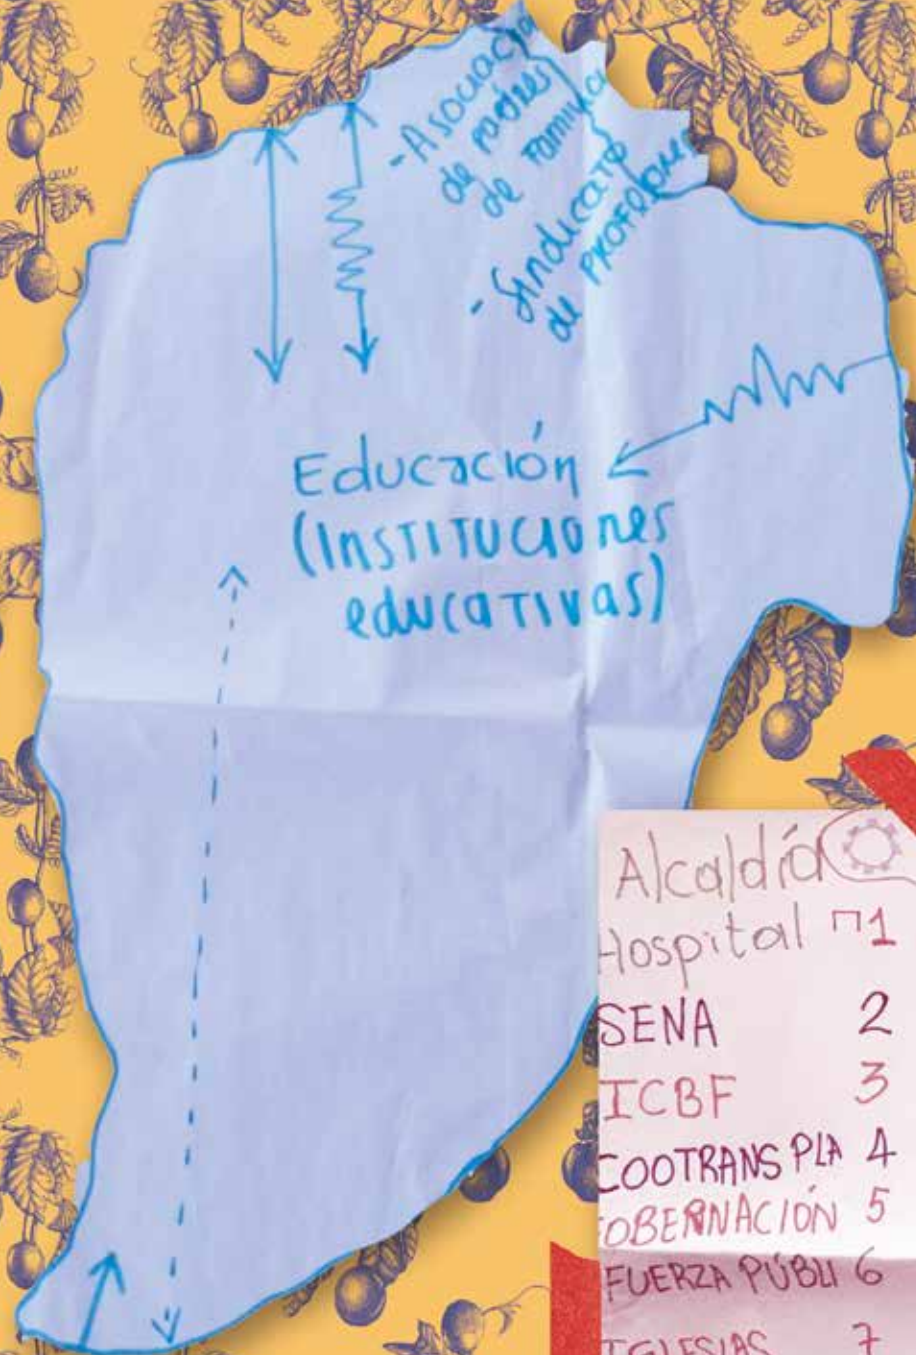 - Asociación
de padres
de familia
- Sindicato
de profesores
Educación
(Instituciones
educativas)
Alcaldía
Hospital 1
SENA 2
ICBF 3
COOTRANS PLA 4
OBERNACIÓN 5
FUERZA PÚBLI 6
IGLESIAS 7